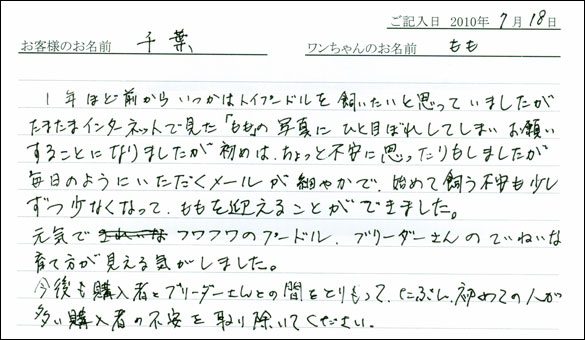 ご記入日 2010年 7月18日
お客様のお名前 千葉 ワンちゃんのお名前 もも
1年ほど前からいつかはトイプードルを飼いたいと思っていましたが
たまたまインターネットで見た「もも」の写真にひと目ぼれしてしまいお願い
することになりましたが初めは、ちょっと不安に思ったりもしましたが
毎日のようにいただくメールが細やかで、始めて飼う不安も少し
ずつ少なくなって、ももを迎えることができました。
元気で きれいな フワフワのプードル、ブリーダーさんのていねいな
育て方が見える気がしました。
今後も購入者とブリーダーさんとの間をとりもって、たぶん、初めての人が
多い購入者の不安を取り除いてください。